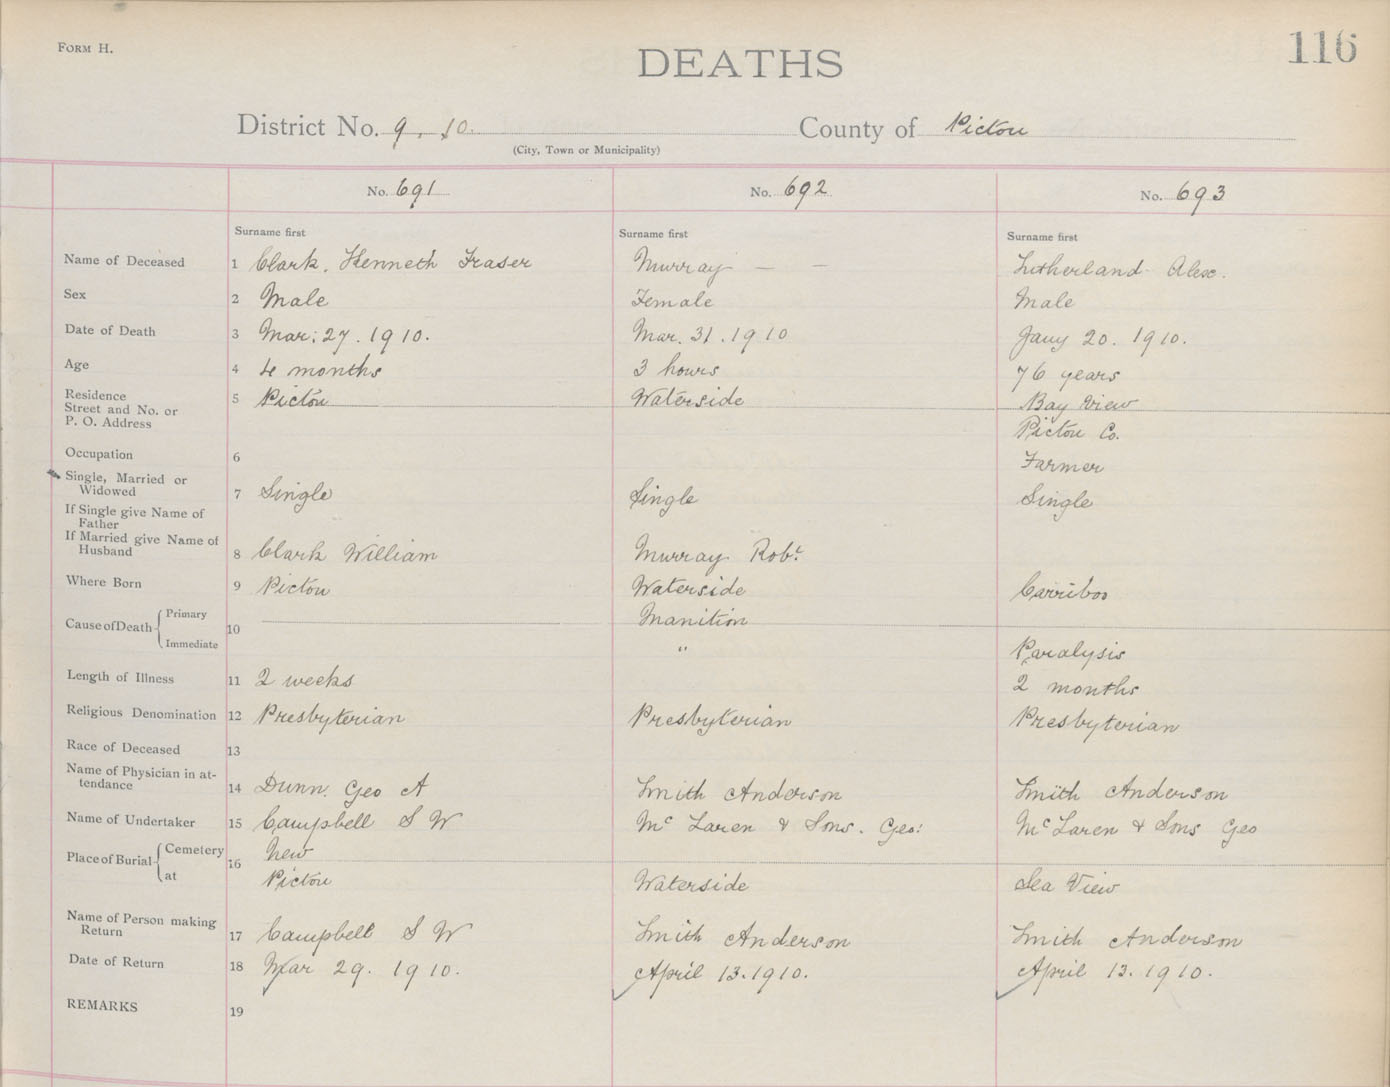 FORM H.
116
DEATHS
District No. 9, 10. County of Pictou
(City, Town or Municipality)
No. 691 No. 692 No. 693
Surname first Surname first Surname first
Name of Deceased 1 Clark, Kenneth Fraser Murray — — Sutherland Alex.
Sex 2 Male Female Male
Date of Death 3 Mar. 27. 1910. Mar. 31. 1910 Jany 20. 1910.
Age 4 4 months 3 hours 76 years
Residence
Street and No. or 5 Pictou Waterside Bay View
P. O. Address Pictou Co.
Occupation 6 Farmer
Single, Married or
Widowed 7 Single Single Single
If Single give Name of
Father
If Married give Name of
Husband 8 Clark William Murray Robt.
Where Born 9 Pictou Waterside Carriboo
Cause of Death Primary 10 Inanition
Immediate " Paralysis
Length of Illness 11 2 weeks 2 months
Religious Denomination 12 Presbyterian Presbyterian Presbyterian
Race of Deceased 13
Name of Physician in at-
tendance 14 Dunn. Geo A Smith Anderson Smith Anderson
Name of Undertaker 15 Campbell S W Mc Laren & Sons. Geo. Mc Laren & Sons Geo
Place of Burial Cemetery 16 New
at Pictou Waterside Sea View
Name of Person making
Return 17 Campbell S W Smith Anderson Smith Anderson
Date of Return 18 Mar 29. 1910. April 13. 1910. April 13. 1910.
REMARKS 19